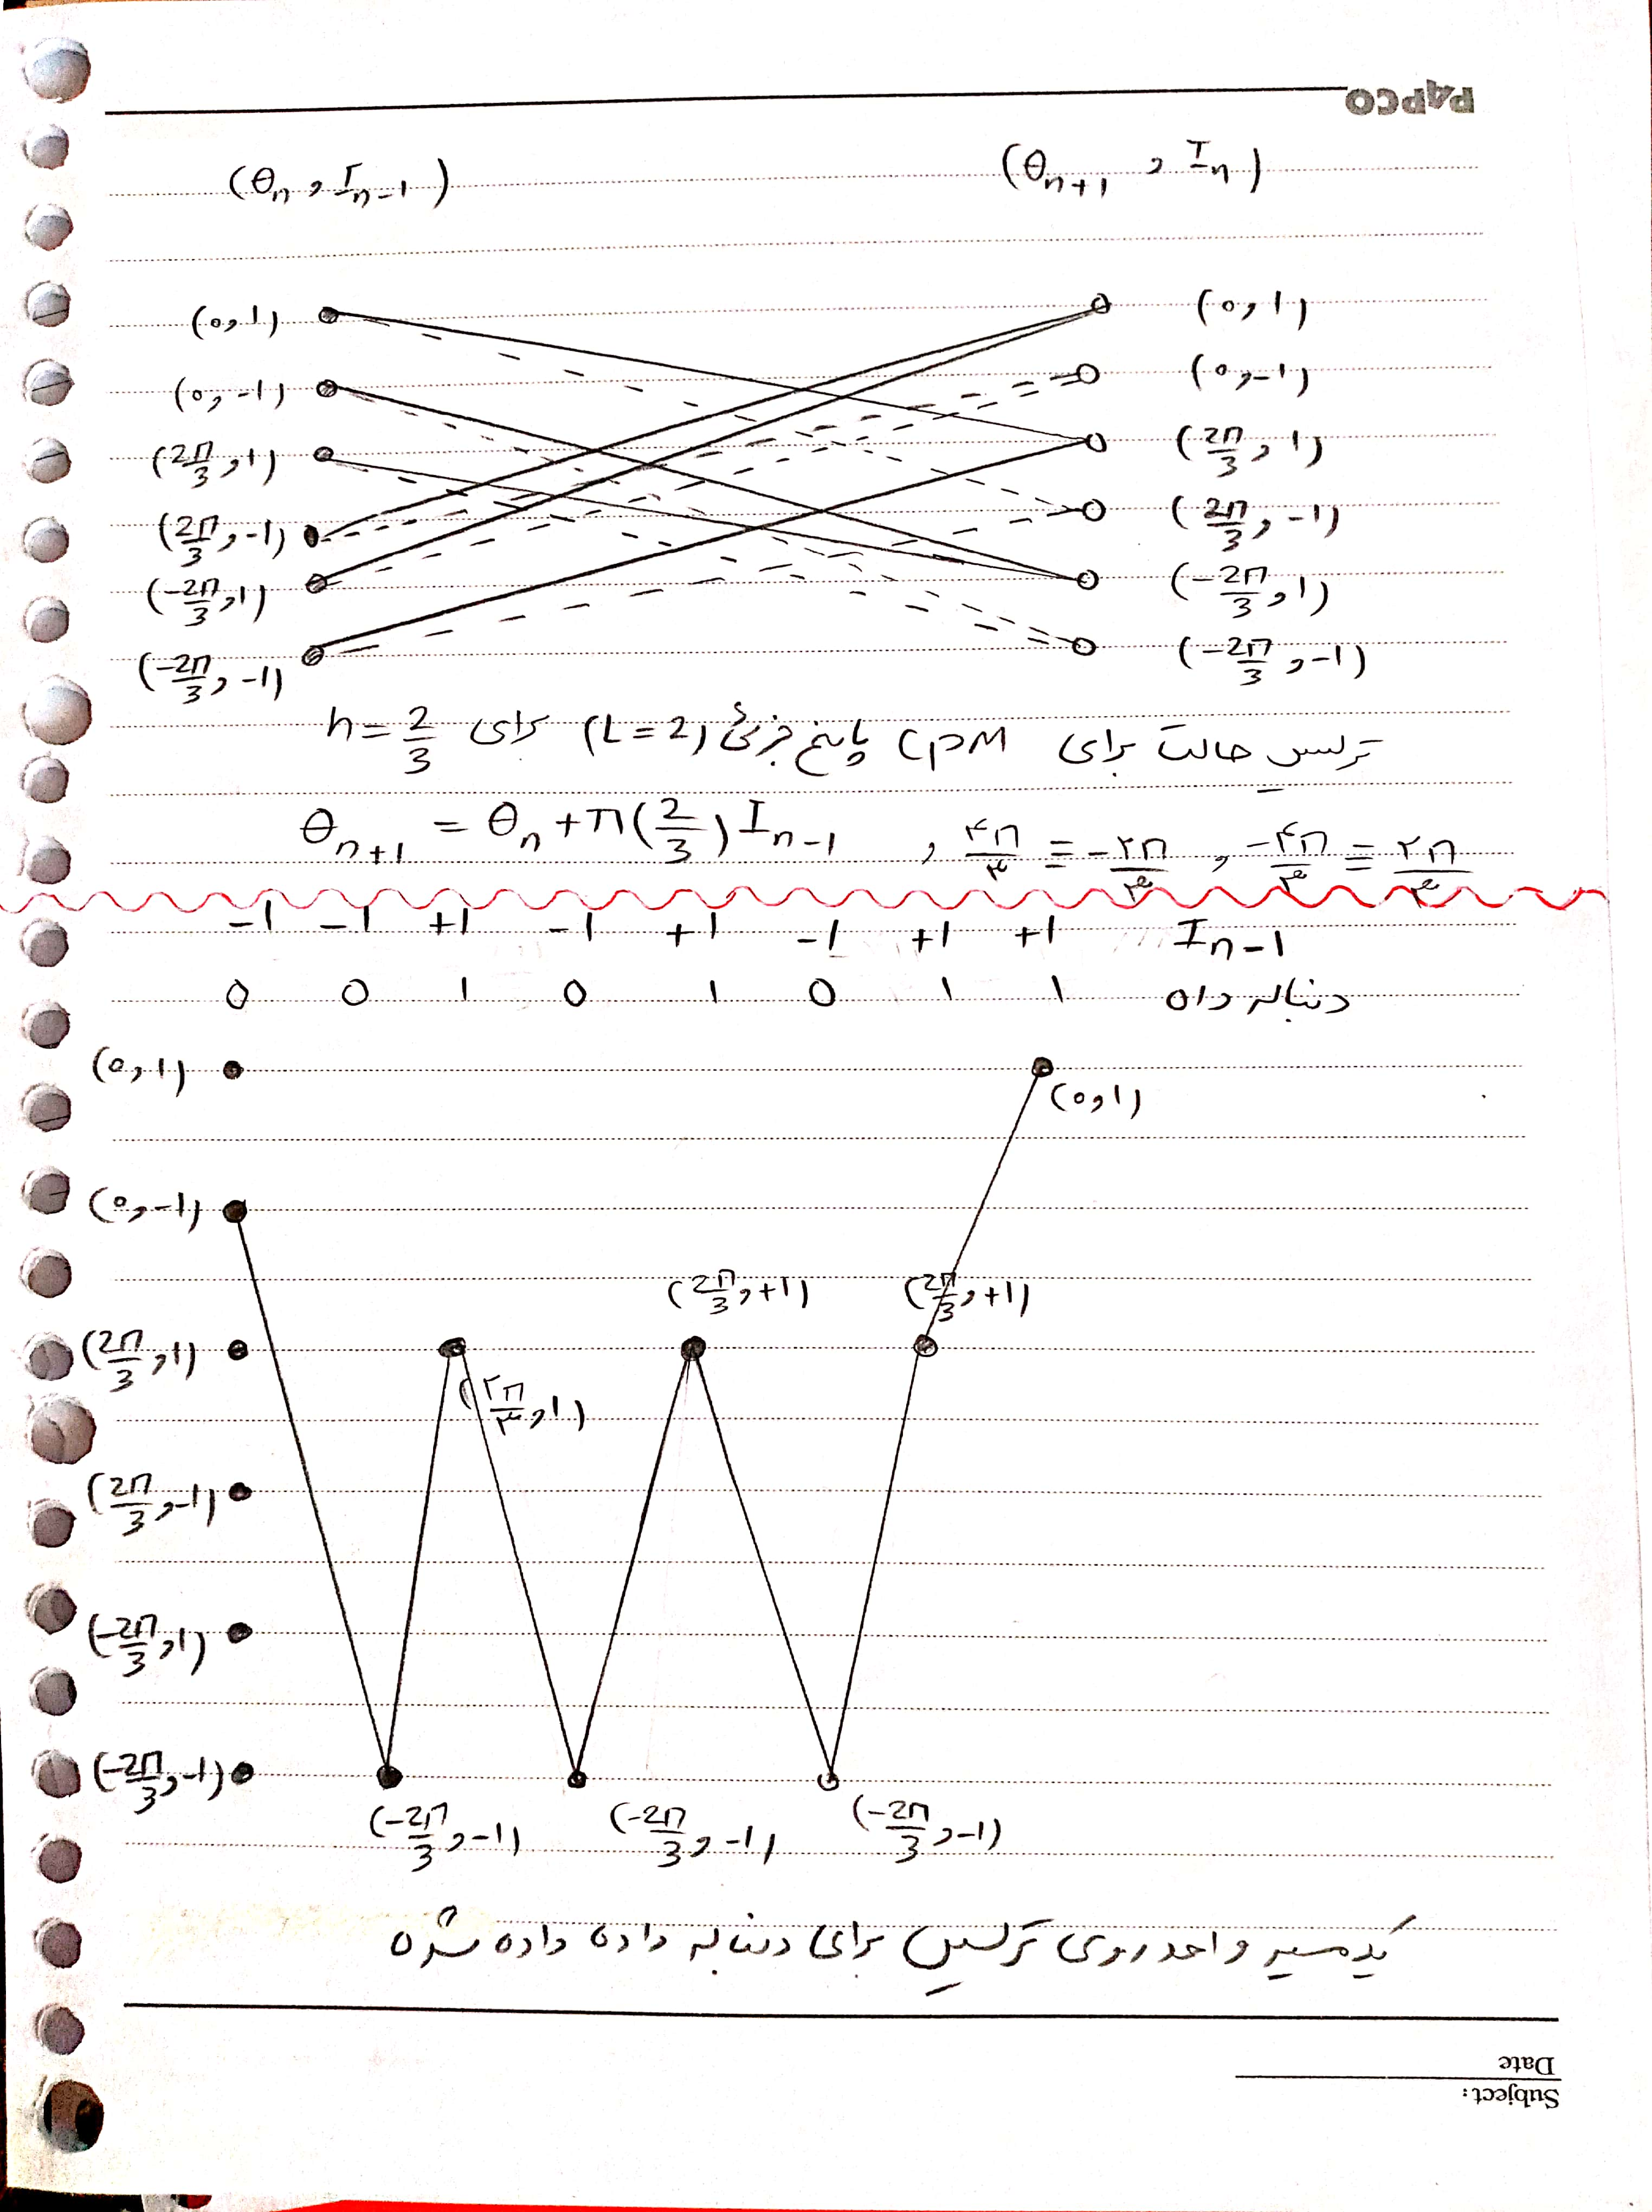 PAPCO
(θₙ , Iₙ₋₁) (θₙ₊₁ , Iₙ)
(0,1) (0,1)
(0,-1) (0,-1)
(2π/3 , 1) (2π/3 , 1)
(2π/3 , -1) (2π/3 , -1)
(-2π/3 , 1) (-2π/3 , 1)
(-2π/3 , -1) (-2π/3 , -1)
ترلیس حالت برای CPM پاسخ جزئی (L=2) برای h=2/3
θₙ₊₁ = θₙ + π(2/3) Iₙ₋₁ , ۴π/۳ = -۲π/۳ , -۴π/۳ = ۲π/۳
-1 -1 +1 -1 +1 -1 +1 +1 Iₙ₋₁
0 0 1 0 1 0 1 1 دنباله داده
(0,1) (0,1)
(0,-1)
(2π/3 , +1) (2π/3 , +1)
(2π/3 , 1) (۲π/۳ , 1)
(2π/3 , -1)
(-2π/3 , 1)
(-2π/3 , -1)
(-2π/3 , -1) (-2π/3 , -1) (-2π/3 , -1)
یک مسیر واحد روی ترلیس برای دنباله داده داده شده
Date
Subject: